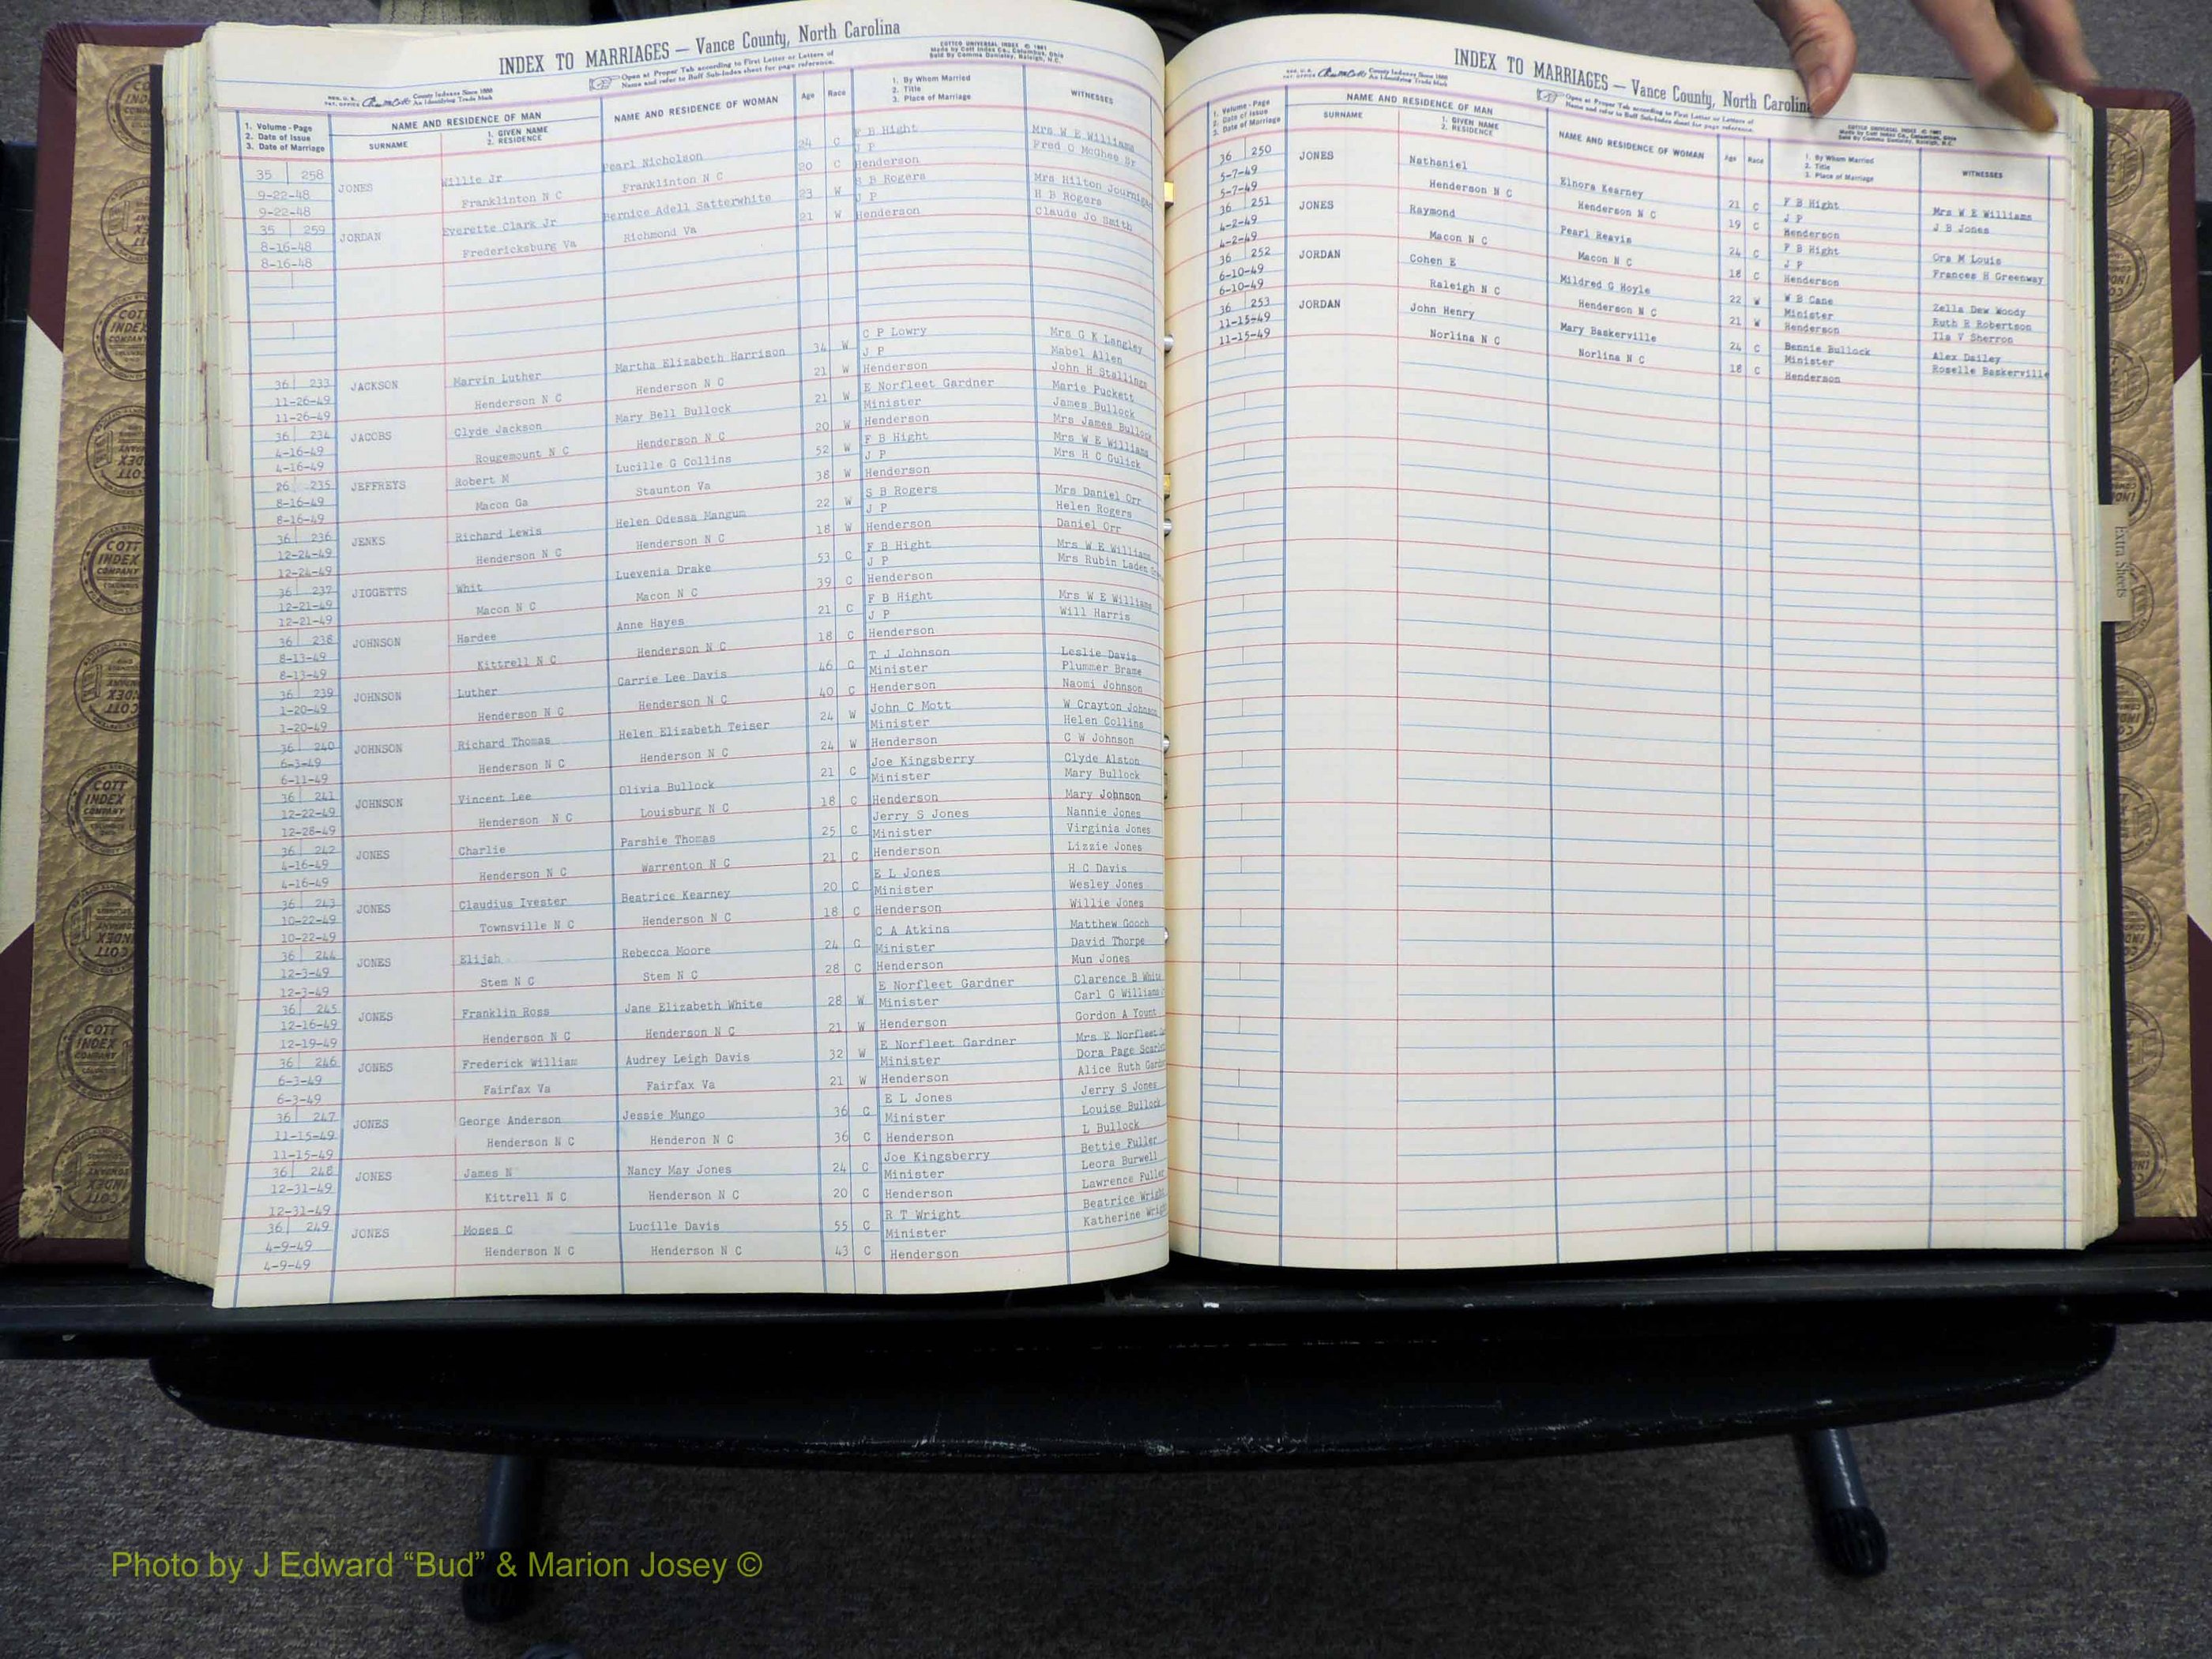 INDEX TO MARRIAGES — Vance County, North Carolina
Open at Proper Tab according to First Letter or Letters of
Name and refer to Buff Sub-Index sheet for page reference.
COTTCO UNIVERSAL INDEX © 1961
Made by Cott Index Co., Columbus, Ohio
Sold By Comma Danieley, Raleigh, N.C.
REG. U. S. PAT. OFFICE County Indexes Since 1888
An Identifying Trade Mark
1. Volume - Page
2. Date of Issue
3. Date of Marriage
NAME AND RESIDENCE OF MAN
SURNAME
1. GIVEN NAME
2. RESIDENCE
NAME AND RESIDENCE OF WOMAN
Age Race
1. By Whom Married
2. Title
3. Place of Marriage
WITNESSES
35 258 JONES Willie Jr Pearl Nicholson 24 C F B Hight Mrs W E Williams
9-22-48 Franklinton N C Franklinton N C 20 C J P Fred O McGhee Sr
9-22-48 Henderson
35 259 JORDAN Everette Clark Jr Bernice Adell Satterwhite 23 W S B Rogers Mrs Hilton
8-16-48 Fredericksburg Va Richmond Va 21 W J P H B Rogers
8-16-48 Henderson Claude Jo Smith
36 233 JACKSON Marvin Luther Martha Elizabeth Harrison 34 W C P Lowry Mrs G K Langley
11-26-49 Henderson N C Henderson N C 21 W J P Mabel Allen
11-26-49 Henderson John H Stallings
36 234 JACOBS Clyde Jackson Mary Bell Bullock 21 W E Norfleet Gardner Marie Puckett
4-16-49 Rougemount N C Henderson N C 20 W Minister James Bullock
4-16-49 Henderson Mrs James Bullock
26 235 JEFFREYS Robert M Lucille G Collins 52 W F B Hight Mrs W E Williams
8-16-49 Macon Ga Staunton Va 38 W J P Mrs H C Gulick
8-16-49 Henderson
36 236 JENKS Richard Lewis Helen Odessa Mangum 22 W S B Rogers Mrs Daniel Orr
12-24-49 Henderson N C Henderson N C 18 W J P Helen Rogers
12-24-49 Henderson Daniel Orr
36 237 JIGGETTS Whit Luevenia Drake 53 C F B Hight Mrs W E Williams
12-21-49 Macon N C Macon N C 39 C J P Mrs Rubin Laden
12-21-49 Henderson
36 238 JOHNSON Hardee Anne Hayes 21 C F B Hight Mrs W E Williams
8-13-49 Kittrell N C Henderson N C 18 C J P Will Harris
8-13-49 Henderson
36 239 JOHNSON Luther Carrie Lee Davis 46 C T J Johnson Leslie Davis
1-20-49 Henderson N C Henderson N C 40 C Minister Plummer Brame
1-20-49 Henderson Naomi Johnson
36 240 JOHNSON Richard Thomas Helen Elizabeth Teiser 24 W John C Mott W Crayton Johnson
6-3-49 Henderson N C Henderson N C 24 W Minister Helen Collins
6-11-49 Henderson C W Johnson
36 241 JOHNSON Vincent Lee Olivia Bullock 21 C Joe Kingsberry Clyde Alston
12-22-49 Henderson N C Louisburg N C 18 C Minister Mary Bullock
12-28-49 Henderson Mary Johnson
36 242 JONES Charlie Parshie Thomas 25 C Jerry S Jones Nannie Jones
4-16-49 Henderson N C Warrenton N C 21 C Minister Virginia Jones
4-16-49 Henderson Lizzie Jones
36 243 JONES Claudius Ivester Beatrice Kearney 20 C E L Jones H C Davis
10-22-49 Townsville N C Henderson N C 18 C Minister Wesley Jones
10-22-49 Henderson Willie Jones
36 244 JONES Elijah Rebecca Moore 24 C C A Atkins Matthew Gooch
12-3-49 Stem N C Stem N C 28 C Minister David Thorpe
12-3-49 Henderson Mun Jones
36 245 JONES Franklin Ross Jane Elizabeth White 28 W E Norfleet Gardner Clarence B White
12-16-49 Henderson N C Henderson N C 21 W Minister Carl G Williams
12-19-49 Henderson Gordon A Yount
36 246 JONES Frederick William Audrey Leigh Davis 32 W E Norfleet Gardner Mrs E Norfleet
6-3-49 Fairfax Va Fairfax Va 21 W Minister Dora Page
6-3-49 Henderson Alice Ruth
36 247 JONES George Anderson Jessie Mungo 36 C E L Jones Jerry S Jones
11-15-49 Henderson N C Henderon N C 36 C Minister Louise Bullock
11-15-49 Henderson L Bullock
36 248 JONES James N Nancy May Jones 24 C Joe Kingsberry Bettie Fuller
12-31-49 Kittrell N C Henderson N C 20 C Minister Leora Burwell
12-31-49 Henderson Lawrence Fuller
36 249 JONES Moses C Lucille Davis 55 C R T Wright Beatrice Wright
4-9-49 Henderson N C Henderson N C 43 C Minister Katherine
4-9-49 Henderson
INDEX TO MARRIAGES — Vance County, North Carolina
Open at Proper Tab according to First Letter or Letters of
Name and refer to Buff Sub-Index sheet for page reference.
COTTCO UNIVERSAL INDEX © 1961
Made by Cott Index Co., Columbus, Ohio
REG. U. S. PAT. OFFICE County Indexes Since 1888
An Identifying Trade Mark
1. Volume - Page
2. Date of Issue
3. Date of Marriage
NAME AND RESIDENCE OF MAN
SURNAME
1. GIVEN NAME
2. RESIDENCE
NAME AND RESIDENCE OF WOMAN
Age Race
1. By Whom Married
2. Title
3. Place of Marriage
WITNESSES
36 250 JONES Nathaniel Elnora Kearney 21 C F B Hight Mrs W E Williams
5-7-49 Henderson N C Henderson N C 19 C J P J B Jones
5-7-49 Henderson
36 251 JONES Raymond Pearl Reavis 24 C F B Hight Ora M Louis
4-2-49 Macon N C Macon N C 18 C J P Frances H Greenway
4-2-49 Henderson
36 252 JORDAN Cohen E Mildred G Hoyle 22 W W B Cane Zella Dew Woody
6-10-49 Raleigh N C Henderson N C 21 W Minister Ruth E Robertson
6-10-49 Henderson Ila V Sherron
36 253 JORDAN John Henry Mary Baskerville 24 C Bennie Bullock Alex Dailey
11-15-49 Norlina N C Norlina N C 18 C Minister Roselle Baskerville
11-15-49 Henderson
Extra Sheets
COTT INDEX COMPANY
Photo by J Edward “Bud” & Marion Josey ©